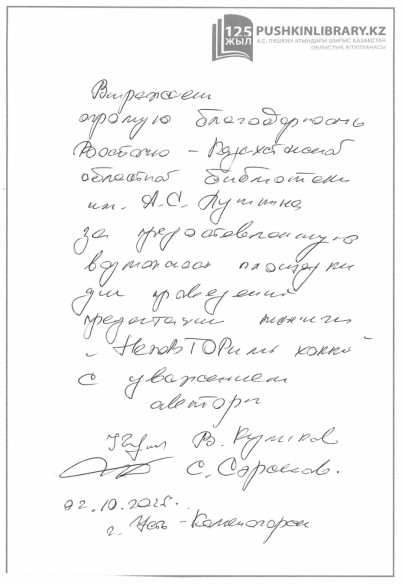 125 ЖЫЛ
PUSHKINLIBRARY.KZ
А.С. ПУШКИН АТЫНДАҒЫ ШЫҒЫС ҚАЗАҚСТАН
ОБЛЫСТЫҚ КІТАПХАНАСЫ
Выражаем
огромную благодарность
Восточно - Казахстанской
областной библиотеки
им. А.С. Пушкина
за предоставленную
возможность площадки
для проведения
презентации книги
с уважением
авторы
В. Куликов
С.
02.10.2025г.
г. Усть - Каменогорск